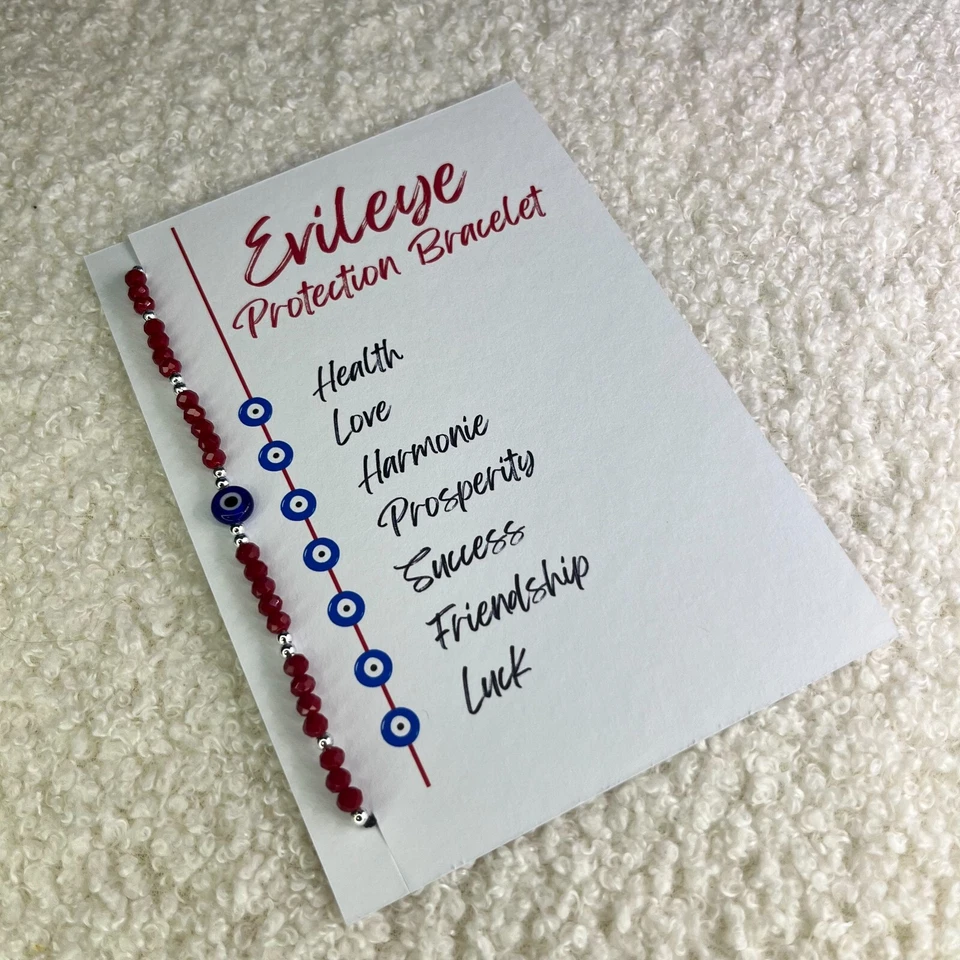 Evileye
Protection Bracelet
Health
Love
Harmonie
Prosperity
Success
Friendship
Luck